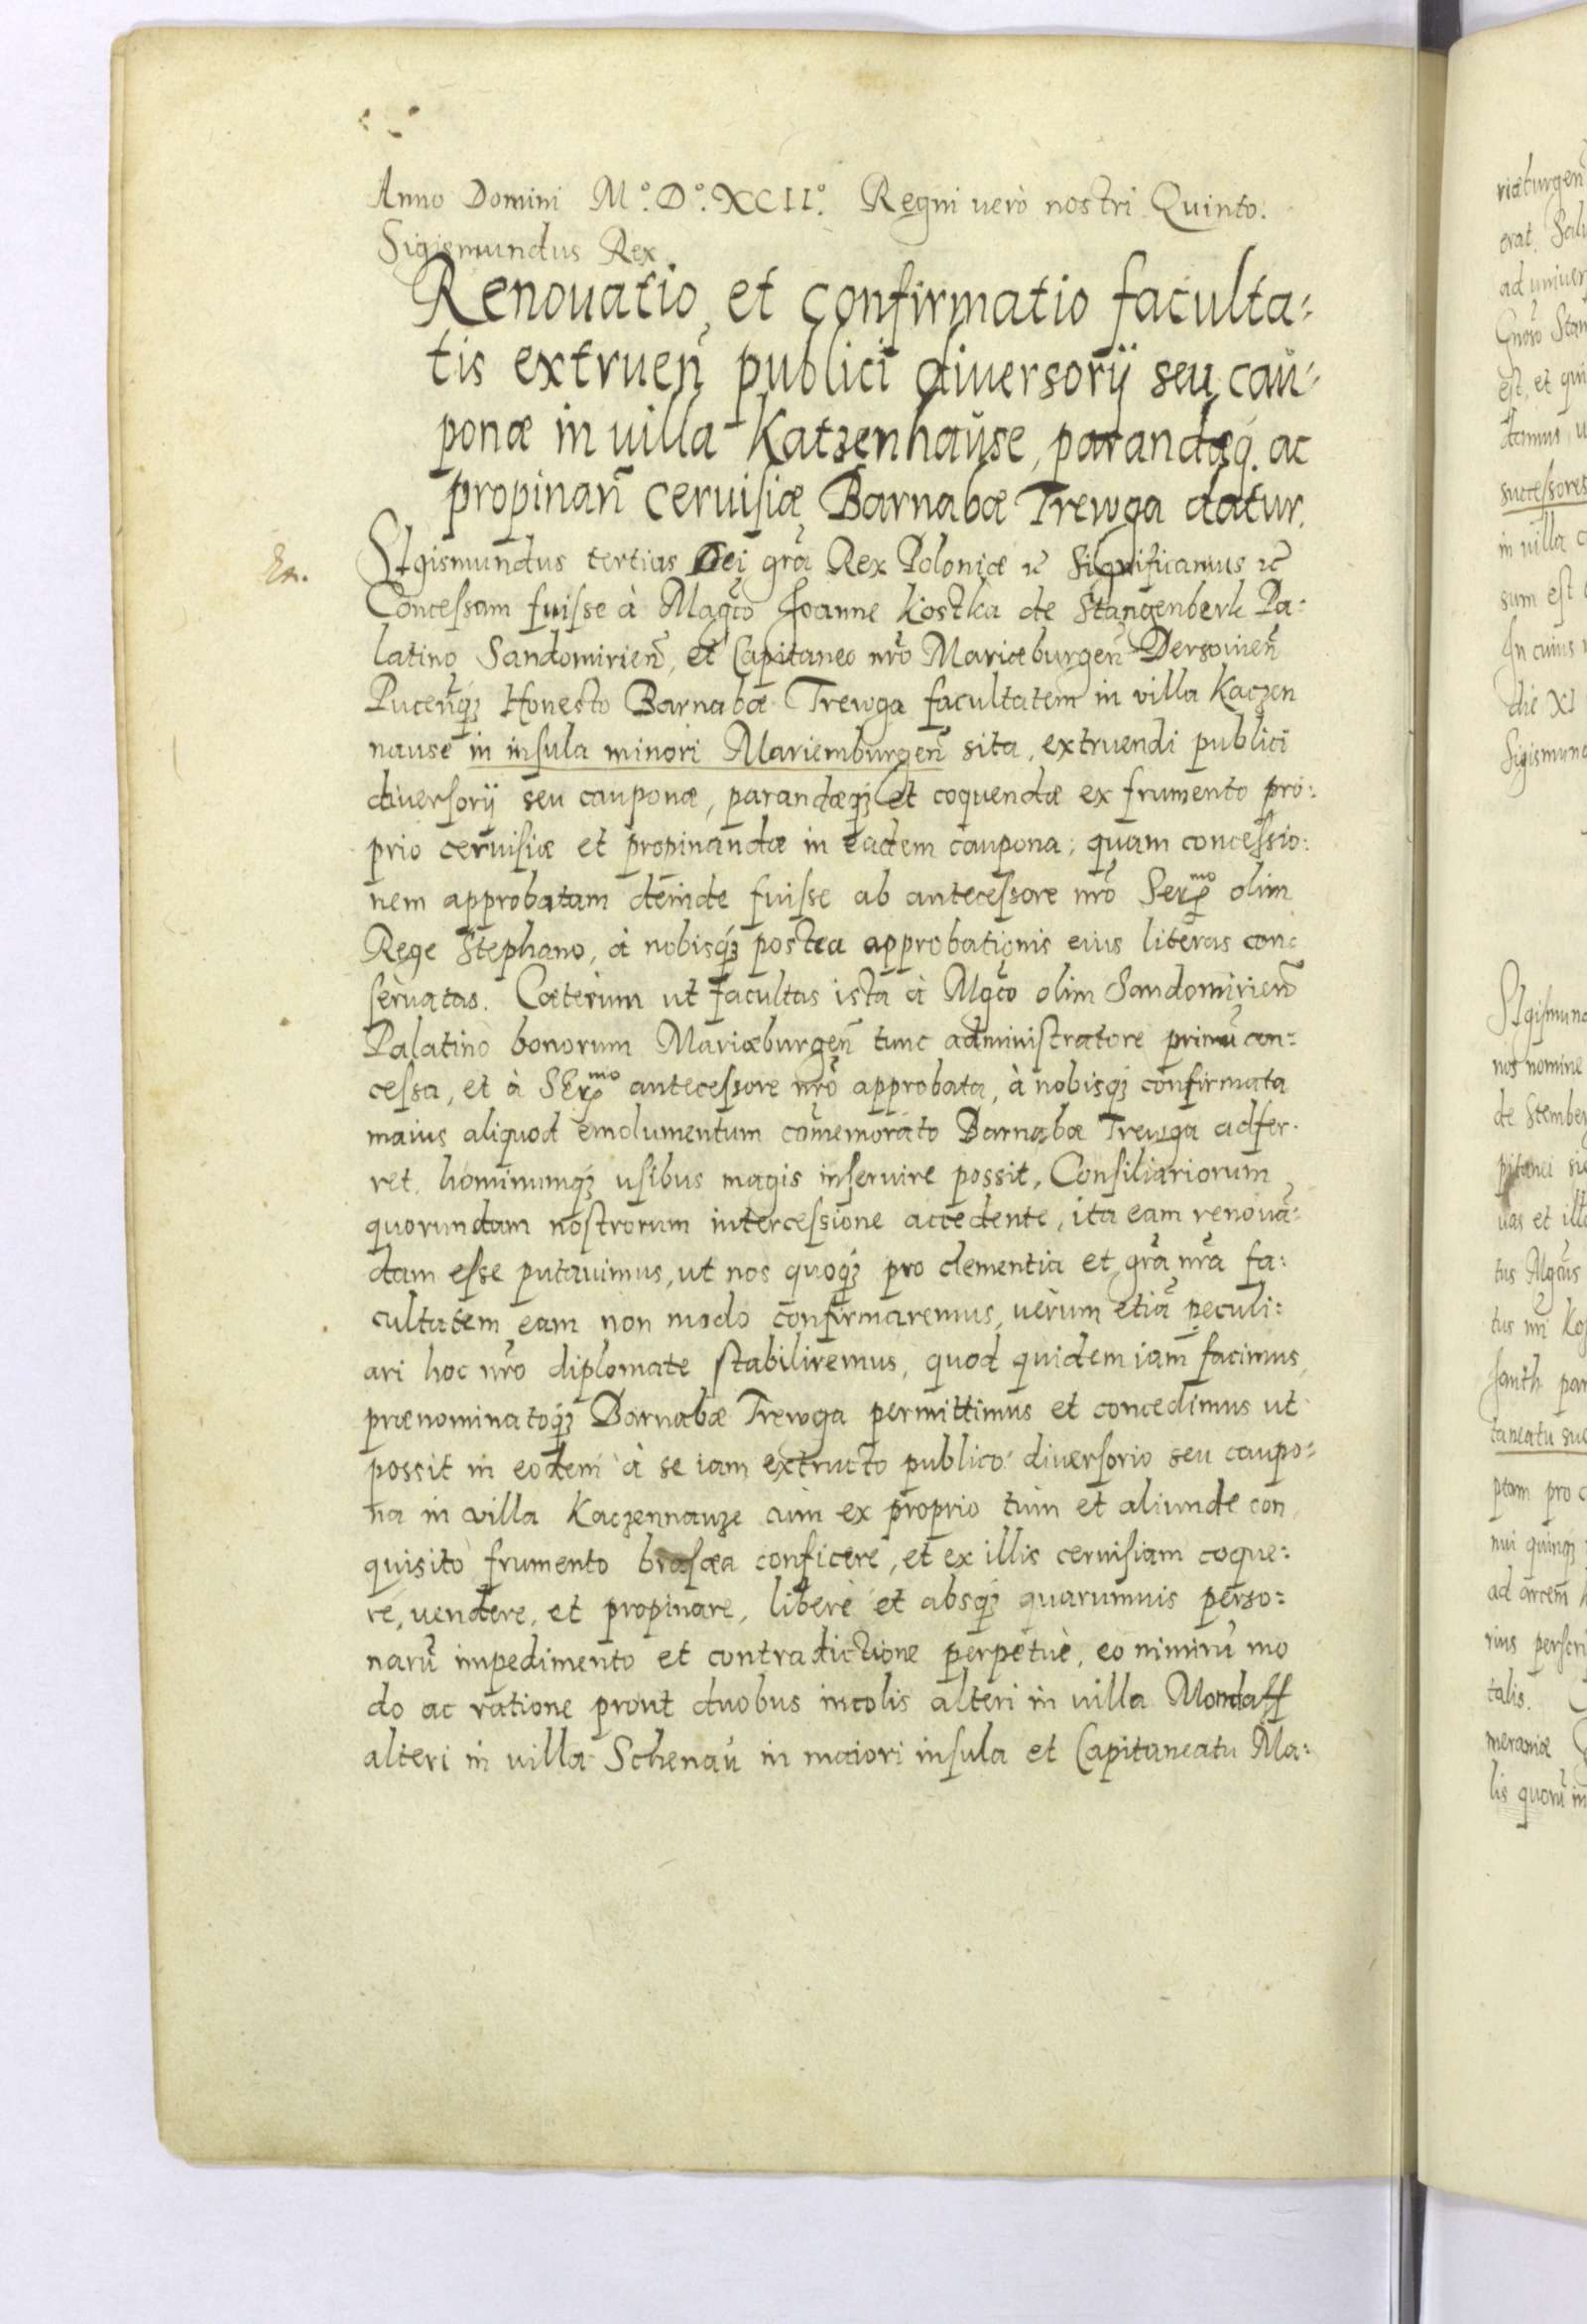 Anno Domini M°. D°. XCII°. Regni uerò nostri Quinto.
Sigismundus Rex
Renouatio et confirmatio faculta:
tis extruen̄ publici diuersorij seu cau:
ponæ in uilla Katzenhause, parandæq. ac
propinan̄ ceruisiæ Barnabæ Trewga datur.
En.
SIgismundus tertius Dei gr̄a Rex Poloniæ ꝛc̄ Significamus ꝛc̄
Concessam fuisse à Magc̄o Joanne Kostka de Stangenberk Pa:
latino Sandomirien̄, et Capitaneo nr̄o Mariæburgen̄ Dersouien̄
Pucen̄qꝫ Honesto Barnabæ Trewga facultatem in villa Kaczen
nause in insula minori Mariemburgen̄ sita, extruendi publici
diuersorij seu cauponæ, parandæqꝫ et coquendæ ex frumento pro:
prio ceruisiæ et propinandæ in eadem caupona; quam concessio:
nem approbatam deinde fuisse ab antecessore nr̄o Serꝑmo olim
Rege Stephano, à nobisqꝫ postea approbationis eius literas con:
seruatas. Cæterum ut facultas ista à Mgc̄o olim Sandomirien̄
Palatino bonorum Mariæburgen̄ tunc administratore primū con:
cessa, et à SErꝑmo antecessore nr̄o approbata, à nobisqꝫ confirmata
maius aliquod emolumentum com̄emorato Barnabæ Trewga adfer.
ret, hominumqꝫ usibus magis inseruire possit, Consiliariorum
quorundam nostrorum intercessione accedente, ita eam renouā:
dam esse putauimus, ut nos quoqꝫ pro clementia et gr̄a nr̄a fa:
cultatem eam non modo confirmaremus, uerum etiā peculi:
ari hoc nr̄o diplomate stabiliremus, quod quidem iam facimus,
prænominatoqꝫ Barnabæ Trewga permittimus et concedimus ut
possit in eodem à se iam extructo publico diuersorio seu caupo:
na in villa Kaczennauze cum ex proprio tum et aliunde con
quisito frumento brasæa conficere, et ex illis ceruisiam coque:
re, uendere, et propinare, liberè et absqꝫ quarumuis perso:
narū impedimento et contradictione perpetuè, eo nimirū mo
do ac ratione prout duobus incolis alteri in uilla Mondaff
alteri in uilla Schenau in maiori insula et Capitaneatu Ma: